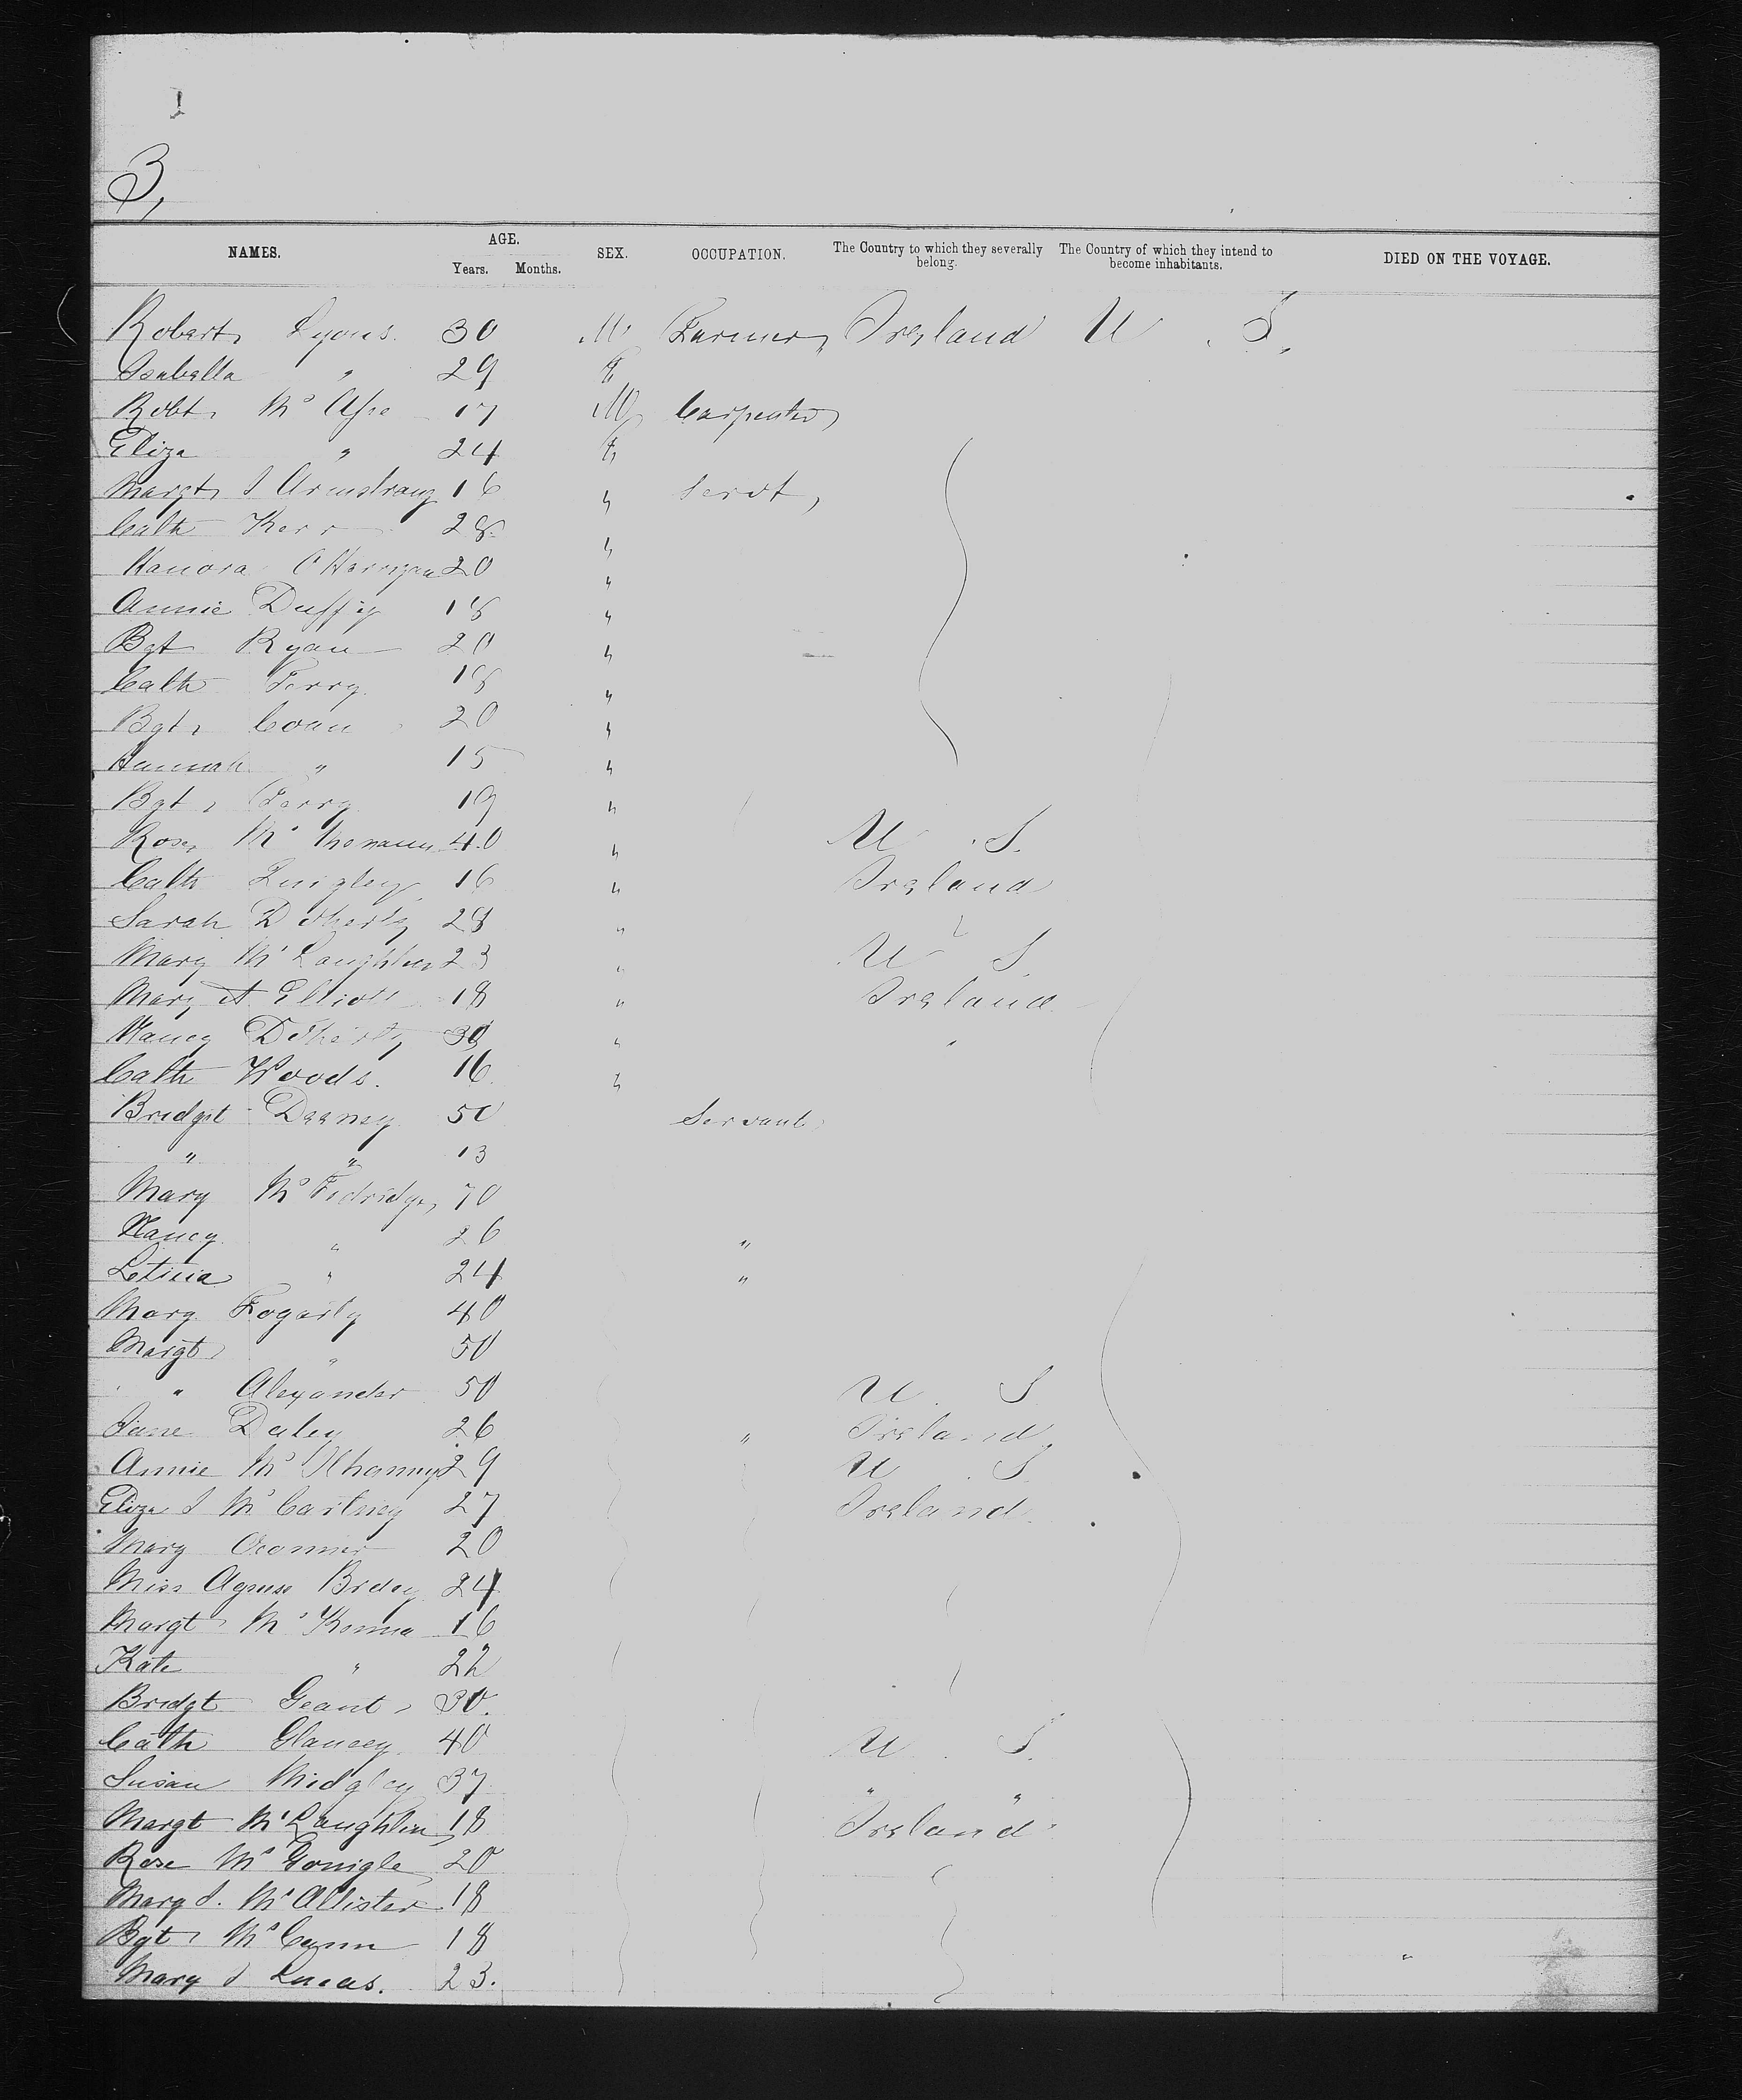 3,
NAMES. AGE. Years. Months. SEX. OCCUPATION. The Country to which they severally belong. The Country of which they intend to become inhabitants. DIED ON THE VOYAGE.
Robert Lyons. 30 M Farmer Ireland U S.
Isabella " 29 F
Robt Mc Afee 17 M Carpenter
Eliza " 24 F
Margt J Armstrong 16 " Servt,
Cath Kerr 28 "
Hanora 20 "
Annie Duffy 18 "
Bgt Ryan 20 "
Cath Ferry 18 "
Bgt Coan 20 "
Hannah " 15 "
Bgt Ferry 19 "
Rose Mc 40 " U S.
Cath Quigley 16 " Ireland
Sarah Doherty 28 "
Mary Mc Laughlin 23 " U S
Mary A Elliott 18 " Ireland
Nancy Doherty 30 " "
Cath Woods. 16 "
Bridget Deaney 50 Servant
" " 13
Mary Mc Fedridge 70
Nancy " 26 "
Leticia " 24 "
Mary Fogarty 40
Margt " 50
" Alexander 50 U S
Jane Daley 26 " Ireland
Annie Mc 29 U S
Eliza J Mc Cartney 27 Ireland
Mary Oconner 20
Miss Agness 24
Margt Mc Kenna 16
Kate " 22
Bridgt Geant 30.
Cath Glancey 40 U S.
Susan Midgley 37 " "
Margt Mc Laughlin 18 Ireland
Rose Mc Gonigle 20
Mary J. Mc Allister 18
Bgt Mc 18
Mary J Lucas. 23.